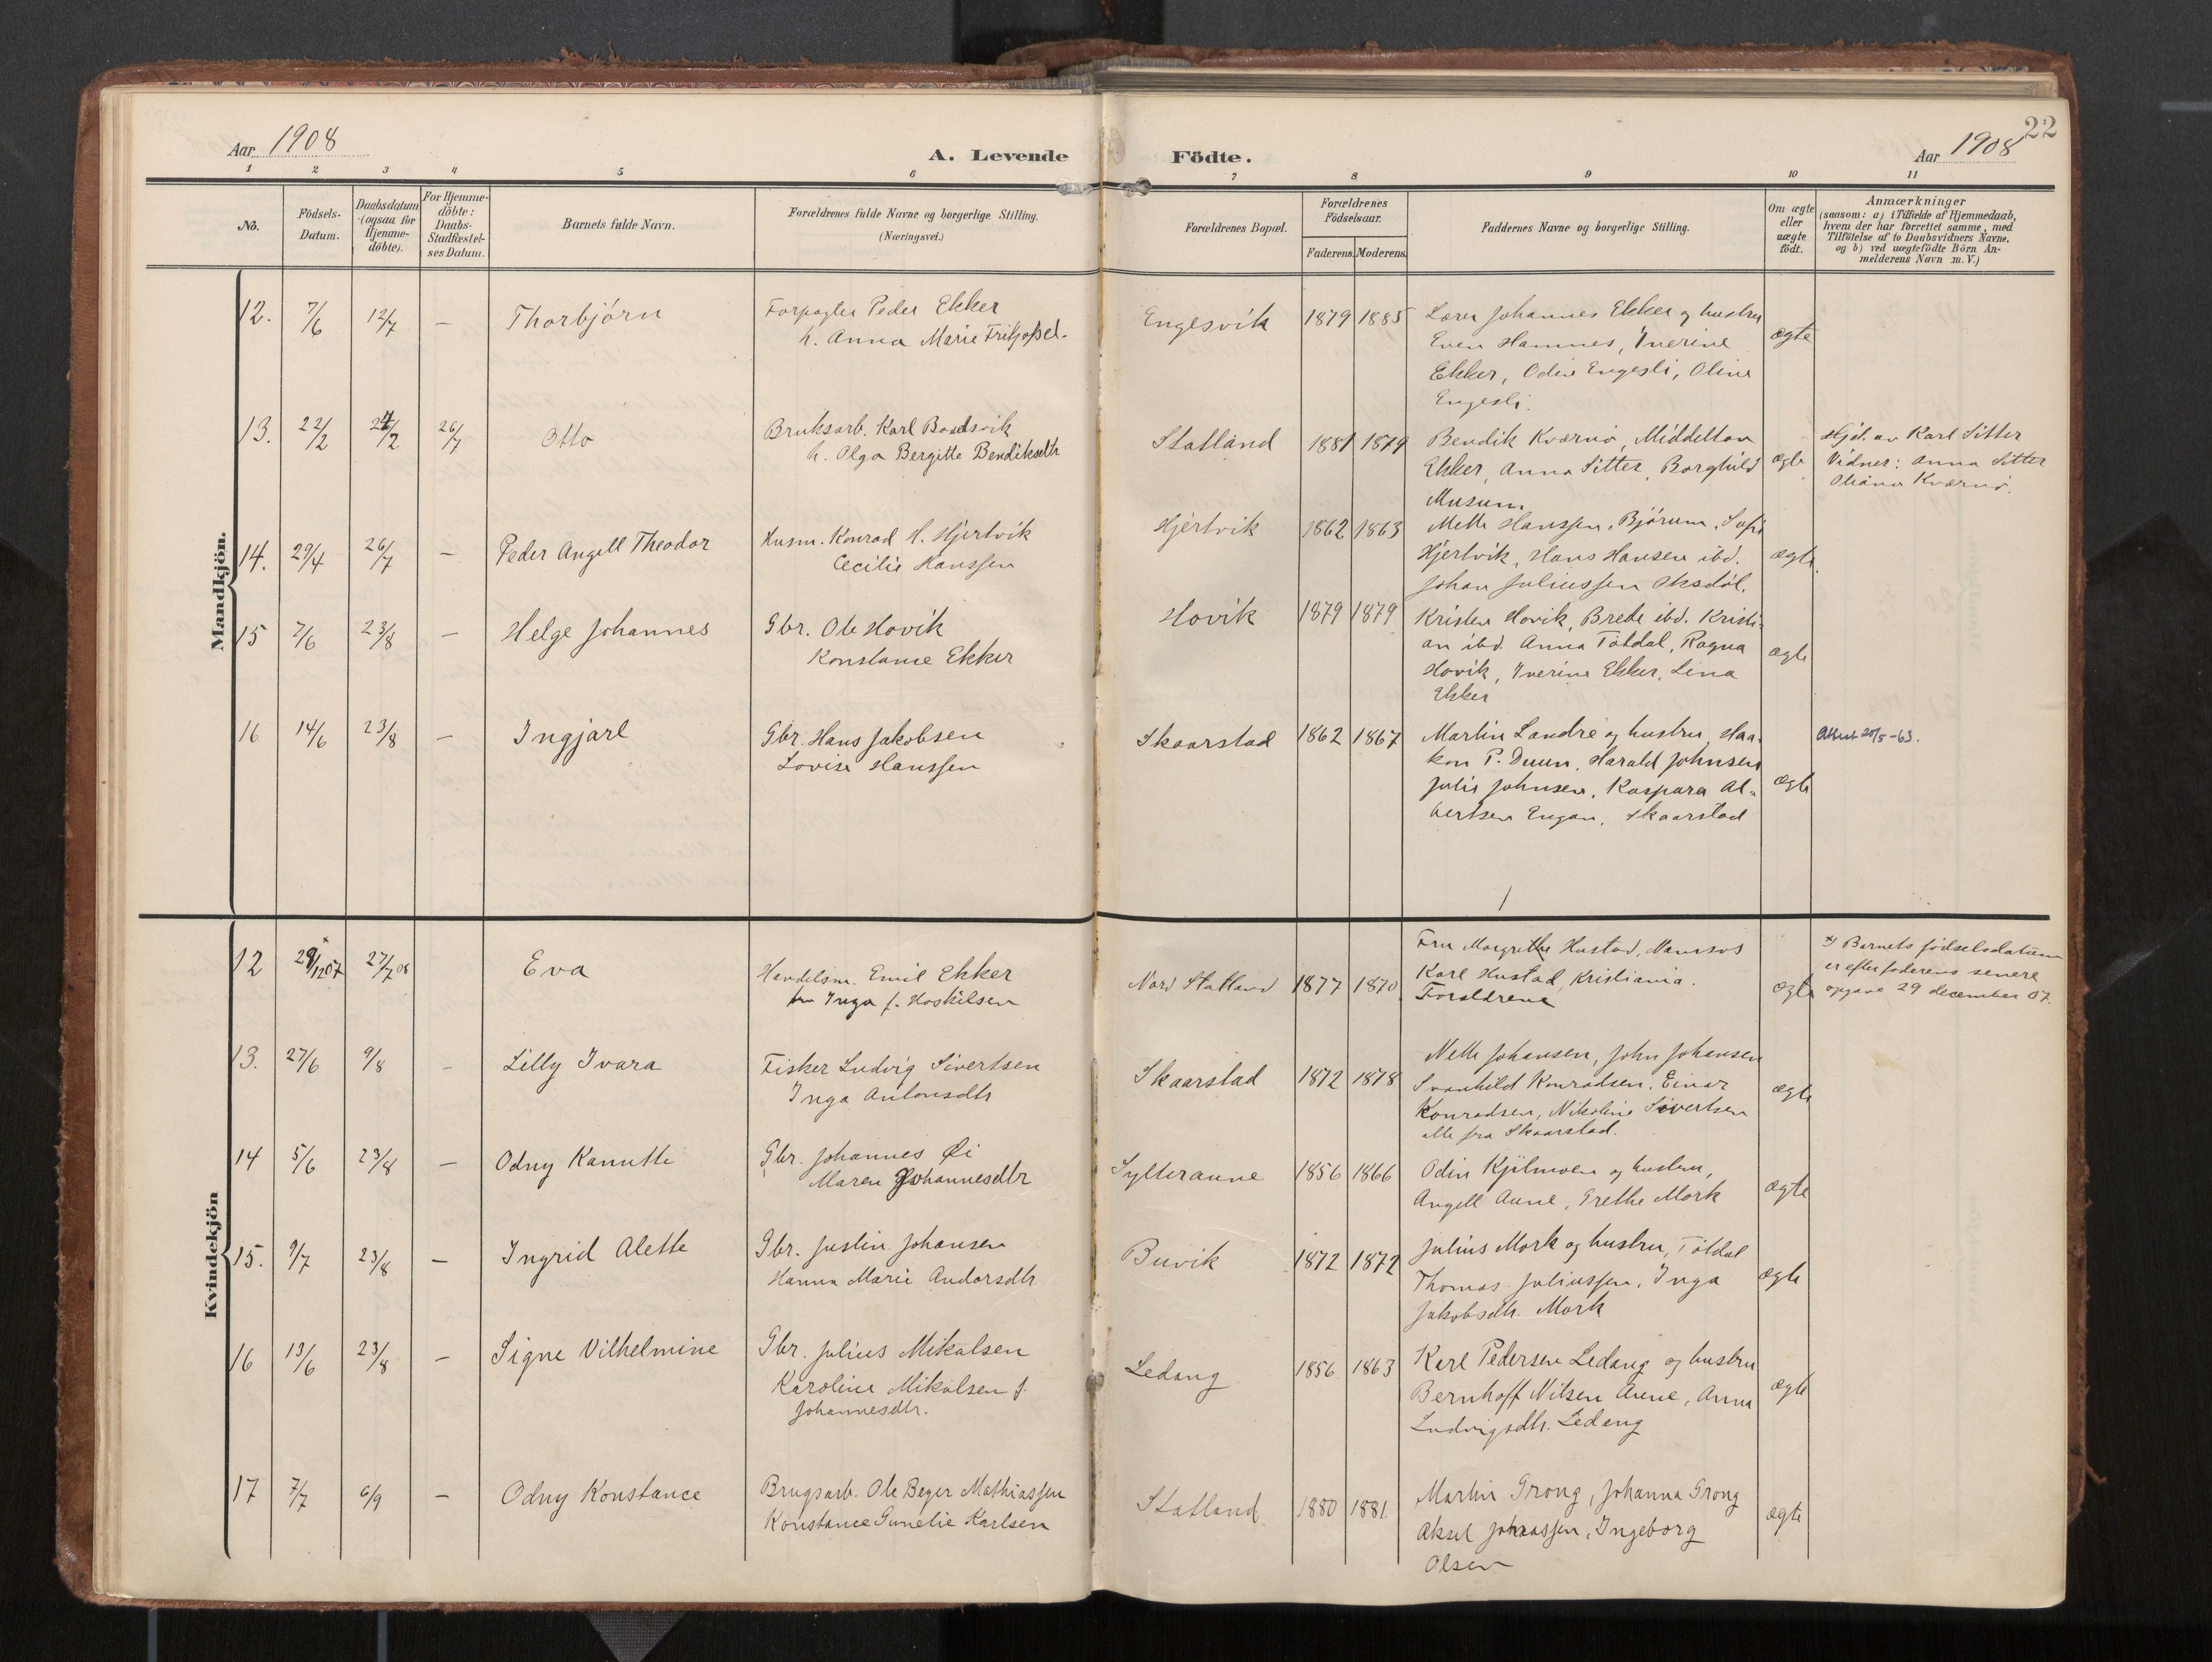 Aar 1908
A. Levende Födte.
Aar 1908
22
1 2 3 4 5 6 7 8 9 10 11
No.
Födsels-
Datum.
Daabsdatum
(ogsaa for
Hjemme-
döbte).
For Hjemme-
döbte:
Daabs-
Stadfæstel-
ses Datum.
Barnets fulde Navn.
Forældrenes fulde Navne og borgerlige Stilling.
(Næringsvei.)
Forældrenes Bopæl.
Forældrenes
Födselsaar.
Faderens. Moderens.
Faddernes Navne og borgerlige Stilling.
Om ægte
eller
uægte
födt.
Anmærkninger
(saasom: a) i Tilfælde af Hjemmedaab,
hvem der har forrettet samme, med
Tilföielse af to Daabsvidners Navne,
og b) ved uægtefödte Börn An-
melderens Navn m. V.)
Mandkjön.
12. 7/6 12/7 — Thorbjörn
Forpagter Peder Ekker
h. Anna Marie
Engesvik 1879 1885
Lærer Johannes Ekker og hustru
Even Hamnes, Iverine
Ekker, Odin Engesli, Oline
Engesli.
ægte
13. 22/2 24/2 26/7 Otto
Bruksarb. Karl
h. Olga Bergitte Bendiksdtr
Statland 1881 1879
Bendik Kværnö, Middelton
Ekker, Anna Sitter, Borghild
Musum
ægte
Hjd. av Karl Sitter
Vidner: Anna Sitter
Kværnö.
14. 29/4 26/7 — Peder Angell Theodor
Husm. Konrad H. Hjertvik
Cecilie Hanssen
Hjertvik 1862 1863
Mette Hanssen, Björum, Sofi
Hjertvik, Hans Hansen ibd.
Johan Juliussen
ægte.
15 7/6 23/8 — Helge Johannes
Gbr. Ole Hovik
Konstance Ekker
Hovik 1879 1879
Kristen Hovik, Brede ibd. Kristi-
an ibd. Anna Töldal, Ragna
Hovik, Iverine Ekker, Lina
Ekker
ægte
16 14/6 23/8 — Ingjarl
Gbr. Hans Jakobsen
Lovise Hanssen
Skaarstad 1862 1867
Martin Landre og hustru, Haa-
kon P. Duun, Harald Johnsen
Julie Johnsen, Kaspara Al-
bertsen Engan, Skaarstad
ægte
Attest 20/5 -63.
Kvindekjön
12 29/12 07 x 27/7 08 Eva
Handelsm. Emil Ekker
Inga f. Hoskilsen
Nord Statland 1877 1870
Fru Margrethe Hustad, Namsos
Karl Hustad, Kristiania.
Forældrene
ægte
x) Barnets födselsdatum
er efter faderens senere
opgave 29 december 07.
13. 27/6 9/8 - Lilly Ivara
Fisker Ludvig Sivertsen
Inga Antonsdtr
Skaarstad 1872 1878
Nelle Johansen, John Johansen
Svanhild Konradsen, Einar
Konradsen, Nikoline Sivertsen
alle fra Skaarstad.
ægte
14 5/6 23/8 — Odny Kanutte
Gbr. Johannes Öi
Maren Johannesdtr
Sylteraune 1856 1866
Odin Kjölmoen og hustru,
Angell Aune, Grethe Mork
ægte
15. 9/7 23/8 — Ingrid Alette
Gbr. Justin Johansen
Hanna Marie Andorsdtr
Buvik 1872 1872
Julius Mork og hustru, Töldal
Thomas Juliussen, Inga
Jakobsdtr. Mork
ægte
16 13/6 23/8 — Signe Vilhelmine
Gbr. Julius Mikalsen
Karoline Mikalsen f.
Johannesdtr.
Ledang 1856 1863
Karl Pedersen Ledang og hustru
Bernhoff Nilsen Aune, Anna
Ludvigsdtr. Ledang
ægte
17 7/7 6/9 — Odny Konstance
Brugsarb. Ole Beyer Mathiassen
Konstance Gunelie Karlsen
Statland 1880 1881.
Martin Grong, Johanna Grong
Aksel Johnassen, Ingeborg
Olsen
ægte